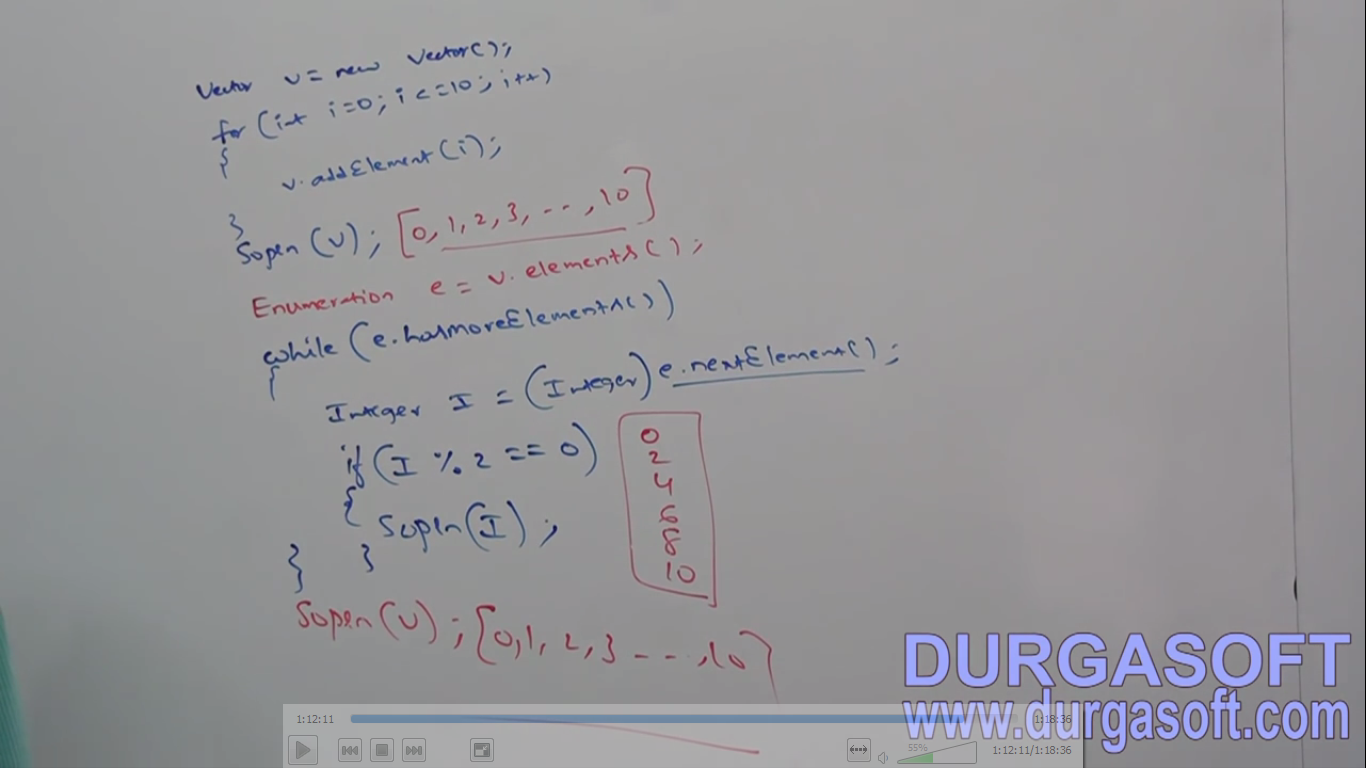 Vector v = new Vector();
for (int i=0; i<=10; i++)
{
v.addElement(i);
}
Sopln(v); [0, 1, 2, 3, ---, 10]
Enumeration e = v.elements();
while (e.hasMoreElements())
{
Integer I = (Integer) e.nextElement();
if (I % 2 == 0)
{
Sopln(I);
}
}
0
2
4
6
8
10
Sopln(v); [0, 1, 2, 3 ---, 10]
DURGASOFT
www.durgasoft.com
1:12:11
1:18:36
55%
1:12:11/1:18:36